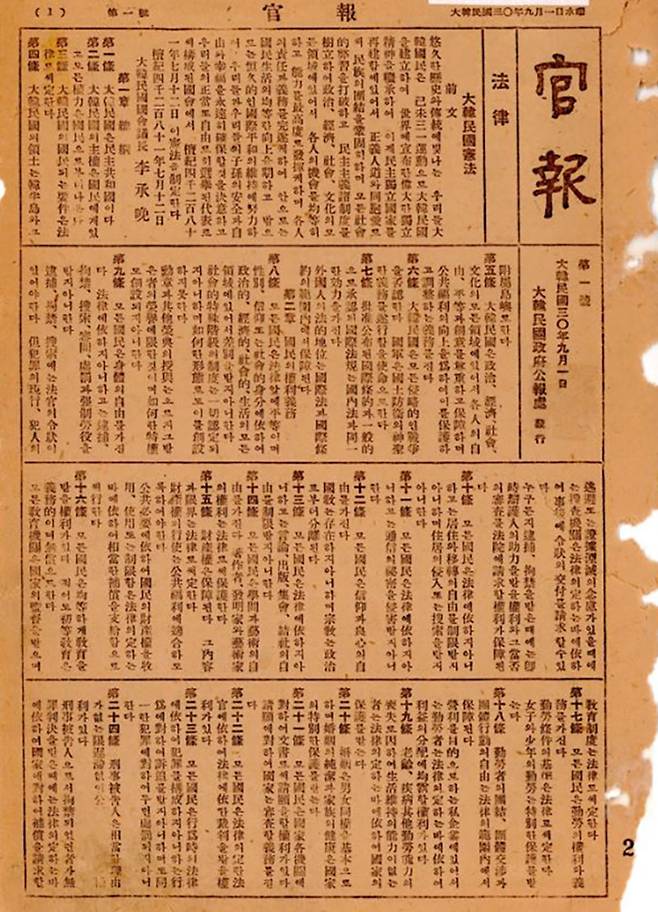 (1)
第一號
官報
大韓民國三〇年九月一日水曜
官報
第一號
大韓民國三〇年九月一日
大韓民國政府公報處 發行
法律
大韓民國憲法
前文
悠久한歷史와傳統에빛나는 우리들大
韓民國은 己未三一運動으로大韓民國
을建立하여 世界에宣布한偉大한獨立
精神을繼承하여 이제民主獨立國家를
再建함에있어서 正義人道와同胞愛로
써 民族의團結을鞏固히하며 모든社會
的弊習을打破하고 民主主義諸制度를
樹立하여政治、經濟、社會、文化의모
든領域에있어서 各人의機會를均等히
하고 能力을最高度로發揮케하며 各人
의責任과義務를完遂케하여 안으로는
國民生活의均等한向上을期하고 밖으
로는恒久的인國際平和의維持에努力하
여 우리들과우리들의子孫의安全과自
由와幸福을永遠히確保할것을決意하고
우리들의正當또自由로히選擧된代表로
써構成된國會에서 檀紀四千二百八十
一年七月十二日 이憲法을制定한다
檀紀四千二百八十一年七月十二日
大韓民國國會議長 李承晩
第一章 總綱
第一條 大韓民國은民主共和國이다
第二條 大韓民國의主權은國民에게있
고모든權力은國民으로부터나온다
第三條 大韓民國의國民되는要件은法
律로써定한다
第四條 大韓民國의領土는韓半島와그
附屬島嶼로한다
第五條 大韓民國은政治、經濟、社會、
文化의모든領域에있어서各人의自
由、平等과創意를尊重하고保障하며
公共福利의向上을爲하여이를保護하
고調整하는義務를진다
第六條 大韓民國은모든侵略的인戰爭
을否認한다 國軍은國土防衛의神聖
한義務를遂行함을使命으로한다
第七條 批准公布된國際條約과一般的
으로承認된國際法規는國內法과同一
한効力을가진다
外國人의法的地位는國際法과國際條
約의範圍內에서保障된다
第二章 國民의權利義務
第八條 모든國民은法律앞에平等이며
性別、信仰또는社會的身分에依하여
政治的、經濟的、社會的、生活의모든
領域에있어서差別을받지아니한다
社會的特殊階級의制度는一切認定되
지아니하며如何한形態로도이를創設
하지못한다
勳章과其他榮典의授與는오로지그받
은者의榮譽에限한것이며如何한特權
도創設되지아니한다
第九條 모든國民은身體의自由를가진
다 法律에依하지아니하고는逮捕、
拘禁、搜索、審問、處罰과强制勞役을
받지아니한다
逮捕、拘禁、搜索에는法官의令狀이
있어야한다 但犯罪의現行、犯人의
逃避또는證據湮滅의念慮가있을때에
는搜査機關은法律의定하는바에依하
여事後에令狀의交付를請求할수있
다
누구든지逮捕、拘禁을받은때에는卽
時辯護人의助力을받을權利와그當否
의審査를法院에請求할權利가保障된
다
第十條 모든國民은法律에依하지아니
하고는居住와移轉의自由를制限받지
아니하며住居의侵入또는搜索을받지
아니한다
第十一條 모든國民은法律에依하지아
니하고는通信의祕密을侵害받지아니
한다
第十二條 모든國民은信仰과良心의自
由를가진다
國敎는存在하지아니하며宗敎는政治
로부터分離된다
第十三條 모든國民은法律에依하지아
니하고는言論、出版、集會、結社의自
由를制限받지아니한다
第十四條 모든國民은學問과藝術의自
由를가진다 著作者、發明家와藝術家
의權利는法律로써保護한다
第十五條 財產權은保障된다 그內容
과限界는法律로써定한다
財產權의行使는公共福利에適合하도
록하여야한다
公共必要에依하여國民의財產權을收
用、使用또는制限함은法律의定하는
바에依하여相當한補償을支給함으로
써行한다
第十六條 모든國民은均等하게敎育을
받을權利가있다 적어도初等敎育은
義務的이며無償으로한다
모든敎育機關은國家의監督을받으며
敎育制度는法律로써定한다
第十七條 모든國民은勤勞의權利와義
務를가진다
勤勞條件의基準은法律로써定한다
女子와少年의勤勞는特別한保護를받
는다
第十八條 勤勞者의團結、團體交涉과
團體行動의自由는法律의範圍內에서
保障된다
營利를目的으로하는私企業에있어서
는勤勞者는法律의定하는바에依하여
利益의分配에均霑할權利가있다
第十九條 老齡、疾病其他勤勞能力의
喪失로因하여生活維持의能力이없는
者는法律의定하는바에依하여國家의
保護를받는다
第二十條 婚姻은男女同權을基本으로
하며婚姻의純潔과家族의健康은國家
의特別한保護를받는다
第二十一條 모든國民은國家各機關에
對하여文書로써請願을할權利가있다
請願에對하여國家는審査할義務를진
다
第二十二條 모든國民은法律의定한法
官에依하여法律에依한裁判을받을權
利가있다
第二十三條 모든國民은行爲時의法律
에依하여犯罪를構成하지아니하는行
爲에對하여訴追를받지아니하며또同
一한犯罪에對하여두번處罰되지아니
한다
第二十四條 刑事被告人은相當한理由
가없는限遲滯없이公
利가있다
刑事被告人으로서拘禁되었던者가無
罪判決을받은때에는法律의定하는바
에依하여國家에對하여補償을請求할
2